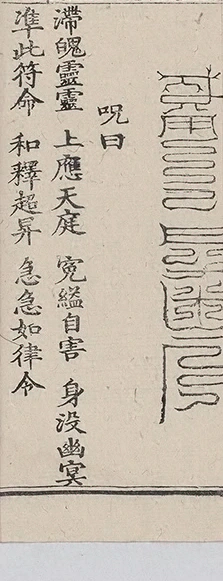 呪曰
滯魄靈靈 上應天庭 寃縊自害 身没幽冥
準此符命 和釋超昇 急急如律令